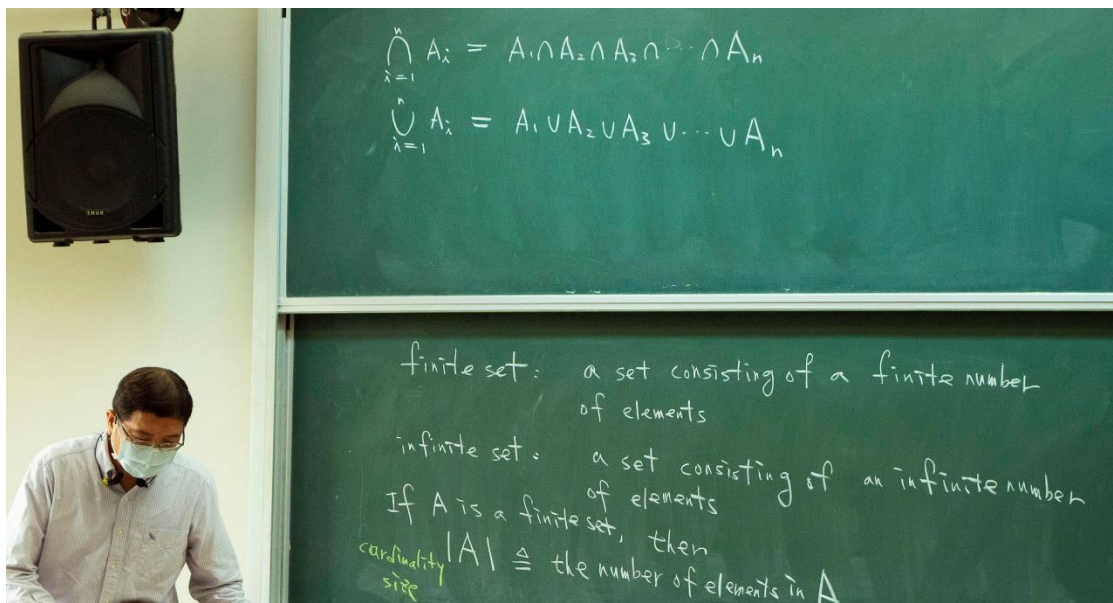 ⋂ᵢ₌₁ⁿ Aᵢ = A₁∩A₂∩A₃∩⋯∩Aₙ
⋃ᵢ₌₁ⁿ Aᵢ = A₁∪A₂∪A₃∪⋯∪Aₙ
finite set: a set consisting of a finite number
of elements
infinite set: a set consisting of an infinite number
of elements
If A is a finite set, then
cardinality |A| ≜ the number of elements in A
size